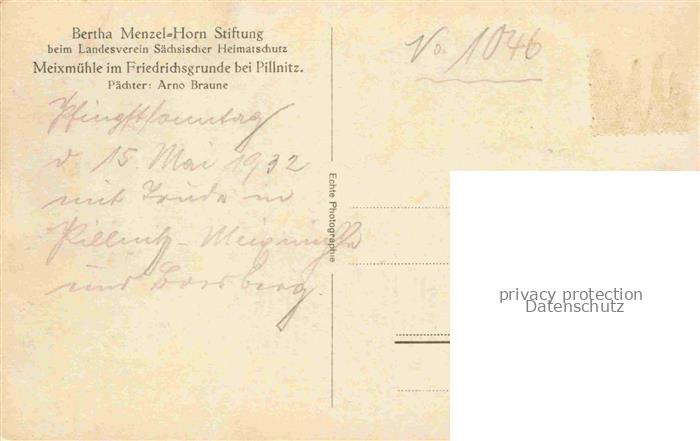 Bertha Menzel-Horn Stiftung
beim Landesverein Sächsischer Heimatschutz
Meixmühle im Friedrichsgrunde bei Pillnitz.
Pächter: Arno Braune
Pfingstsonntag
d 15. Mai 1932
mit Trude in
Pillnitz-Meixmühle
und Borsberg.
Echte Photographie
No. 1046
privacy protection
Datenschutz